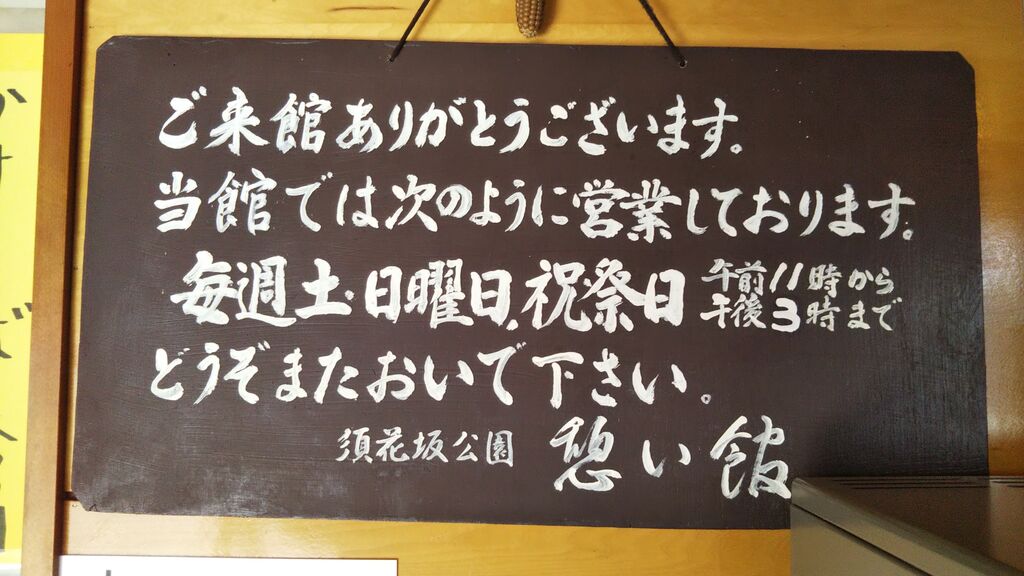 ご来館ありがとうございます。
当館では次のように営業しております。
毎週土・日曜日、祝祭日 午前11時から
午後3時まで
どうぞまたおいで下さい。
須花坂公園 憩い館